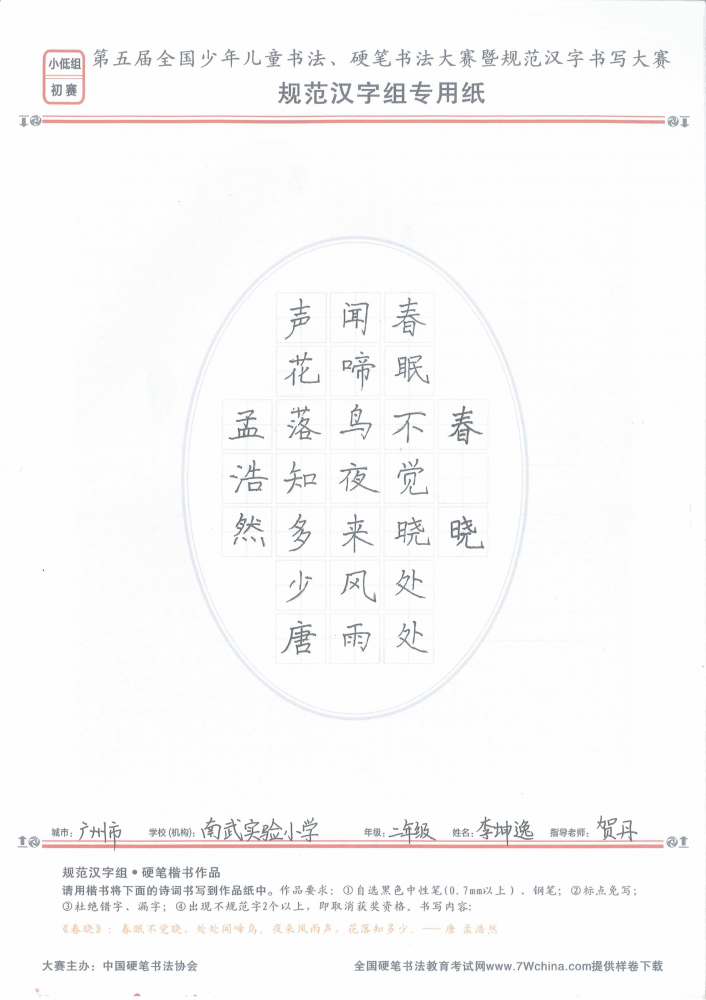 小低组
初赛
第五届全国少年儿童书法、硬笔书法大赛暨规范汉字书写大赛
规范汉字组专用纸
春晓
春眠不觉晓处处
闻啼鸟夜来风雨
声花落知多少唐
孟浩然
城市：广州市 学校(机构)：南武实验小学 年级：二年级 姓名：李坤逸 指导老师：贺丹
规范汉字组•硬笔楷书作品
请用楷书将下面的诗词书写到作品纸中。作品要求：①自选黑色中性笔(0.7mm以上)、钢笔；②标点免写；
③杜绝错字、漏字；④出现不规范字2个以上，即取消获奖资格。书写内容：
《春晓》：春眠不觉晓，处处闻啼鸟。夜来风雨声，花落知多少。——唐 孟浩然
大赛主办：中国硬笔书法协会 全国硬笔书法教育考试网www.7Wchina.com提供样卷下载